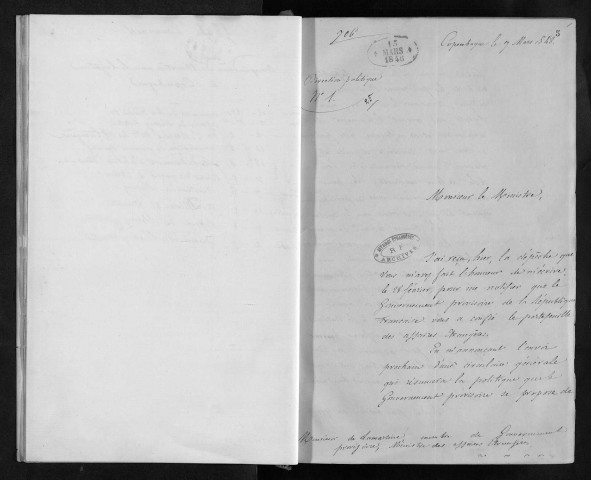 5
Copenhague le 9 Mars 1848.
15
MARS
1848
Direction politique
N° 1.
Monsieur le Ministre,
AFFAIRES ÉTRANGÈRES
R F
ARCHIVES
J'ai reçu, hier, la dépêche que
vous m'avez fait l'honneur de m'écrire,
le 28 février, pour me notifier que le
Gouvernement provisoire de la République
Française vous a confié le portefeuille
des affaires Etrangères.
En m'annonçant l'envoi
prochain d'une circulaire générale
qui résumera la politique que le
Gouvernement provisoire se propose de
Monsieur de Lamartine, membre du Gouvernement
provisoire, Ministre des affaires Etrangères.